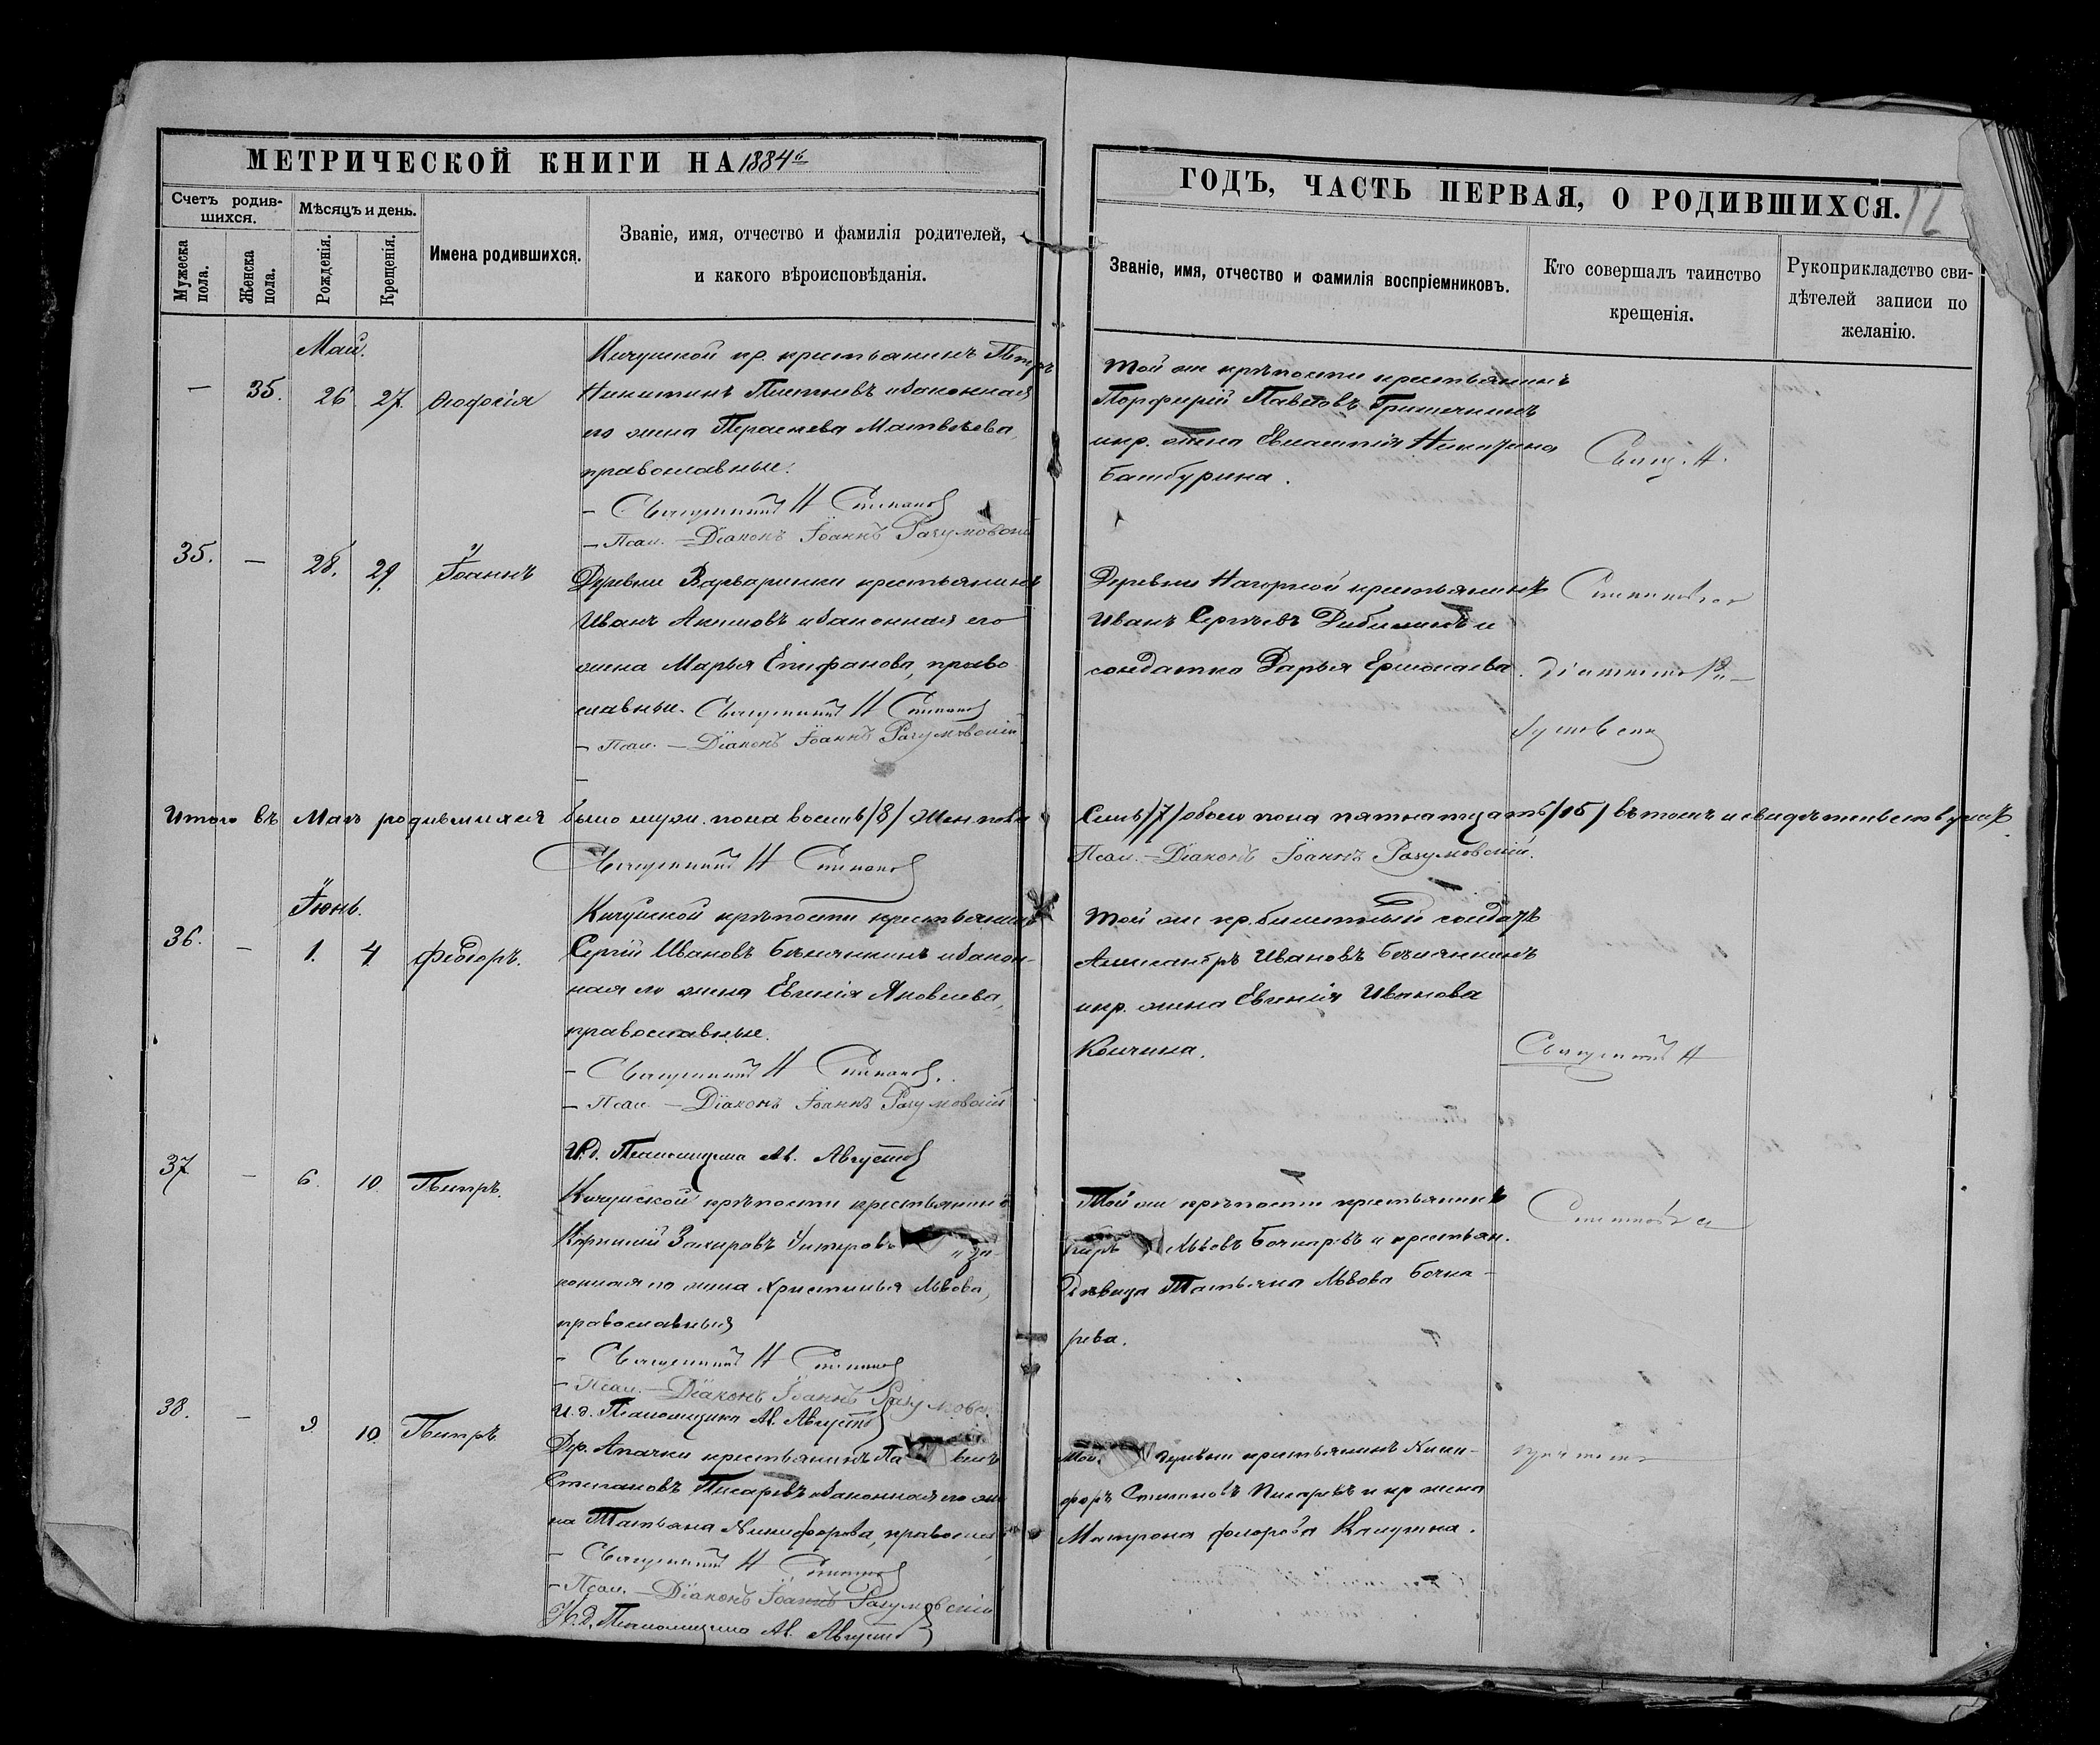 МЕТРИЧЕСКОЙ КНИГИ НА 1884й
ГОДЪ, ЧАСТЬ ПЕРВАЯ, О РОДИВШИХСЯ.
12
Счетъ родив-
шихся.
Мѣсяцъ и день.
Мужеска
пола.
Женска
пола.
Рожденія.
Крещенія.
Имена родившихся.
Званіе, имя, отчество и фамилія родителей,
и какого вѣроисповѣданія.
Званіе, имя, отчество и фамилія воспріемниковъ.
Кто совершалъ таинство
крещенія.
Рукоприкладство сви-
дѣтелей записи по
желанію.
Май.
— 35. 26 27. Ѳеодосія
Кичуиской кр. крестьянинъ Петръ
Никитинъ и законная
его жена Параскева Матвѣева,
православные.
— Священникъ Н Степановъ
— Псал. — Діаконъ Іоаннъ Разумовскій
Той же крѣпости крестьянинъ
Порфирій Павловъ Гришечкинъ
и кр. жена Евлампія Никитина
Батбурина.
Свящ. Н.
35. — 28. 29. Іоаннъ
Деревни Варваринки крестьянинъ
Иванъ Акимовъ и законная его
жена Марья Епифанова, право
славные. Священникъ Н Степановъ
— Псал. — Діаконъ Іоаннъ Разумовскій
Деревни Нагорной крестьянинъ
Иванъ Сергѣевъ и
солдатка Дарья Ермолаева.
Степановъ съ
діакономъ Ра-
зумовскимъ
Итого въ Маѣ родившихся было муж. пола восемь /8/ жен. пола
семь /7/ обоего пола пятнадцать /15/ въ томъ и свидѣтельствуемъ
Священникъ Н Степановъ
Псал. — Діаконъ Іоаннъ Разумовскій.
Іюнь.
36. — 1. 4. Феодоръ.
Кичуйской крѣпости крестьянинъ
Сергій Ивановъ Бѣлянкинъ и закон-
ная его жена Евгенія Яковлева,
православные.
— Священникъ Н Степановъ.
— Псал. — Діаконъ Іоаннъ Разумовскій
И.д. Псаломщика Ал. Августовъ
Той же кр. билетный солдатъ
Александръ Ивановъ Бѣлянкинъ
и кр. жена Евгенія Иванова
Колчина.
Священникъ Н
37 — 6. 10. Петръ.
Кичуйской крѣпости крестьянинъ
Корнилій Захаровъ и за-
конная его жена Христинья Львова,
православныя
— Священникъ Н Степановъ
— Псал. — Діаконъ Іоаннъ Разумовс.
И.д. Псаломщика Ал. Августовъ
Той же крѣпости крестьянинъ
Львовъ Бочкаревъ и крестьян.
дѣвица Татьяна Львова Бочка-
рева.
Степановъ съ
38. — 9 10. Петръ.
Дер. Апачки крестьянинъ Павелъ
Степановъ Писаревъ и законная его же
на Татьяна Никифорова, правосла
— Священникъ Н Степановъ
— Псал. — Діаконъ Іоаннъ Разумовскій
И.д. Псаломщика Ал. Августовъ
Той деревни крестьянинъ Ники-
форъ Степановъ Писаревъ и кр жена
Матрона Федорова Калугина.
причтомъ